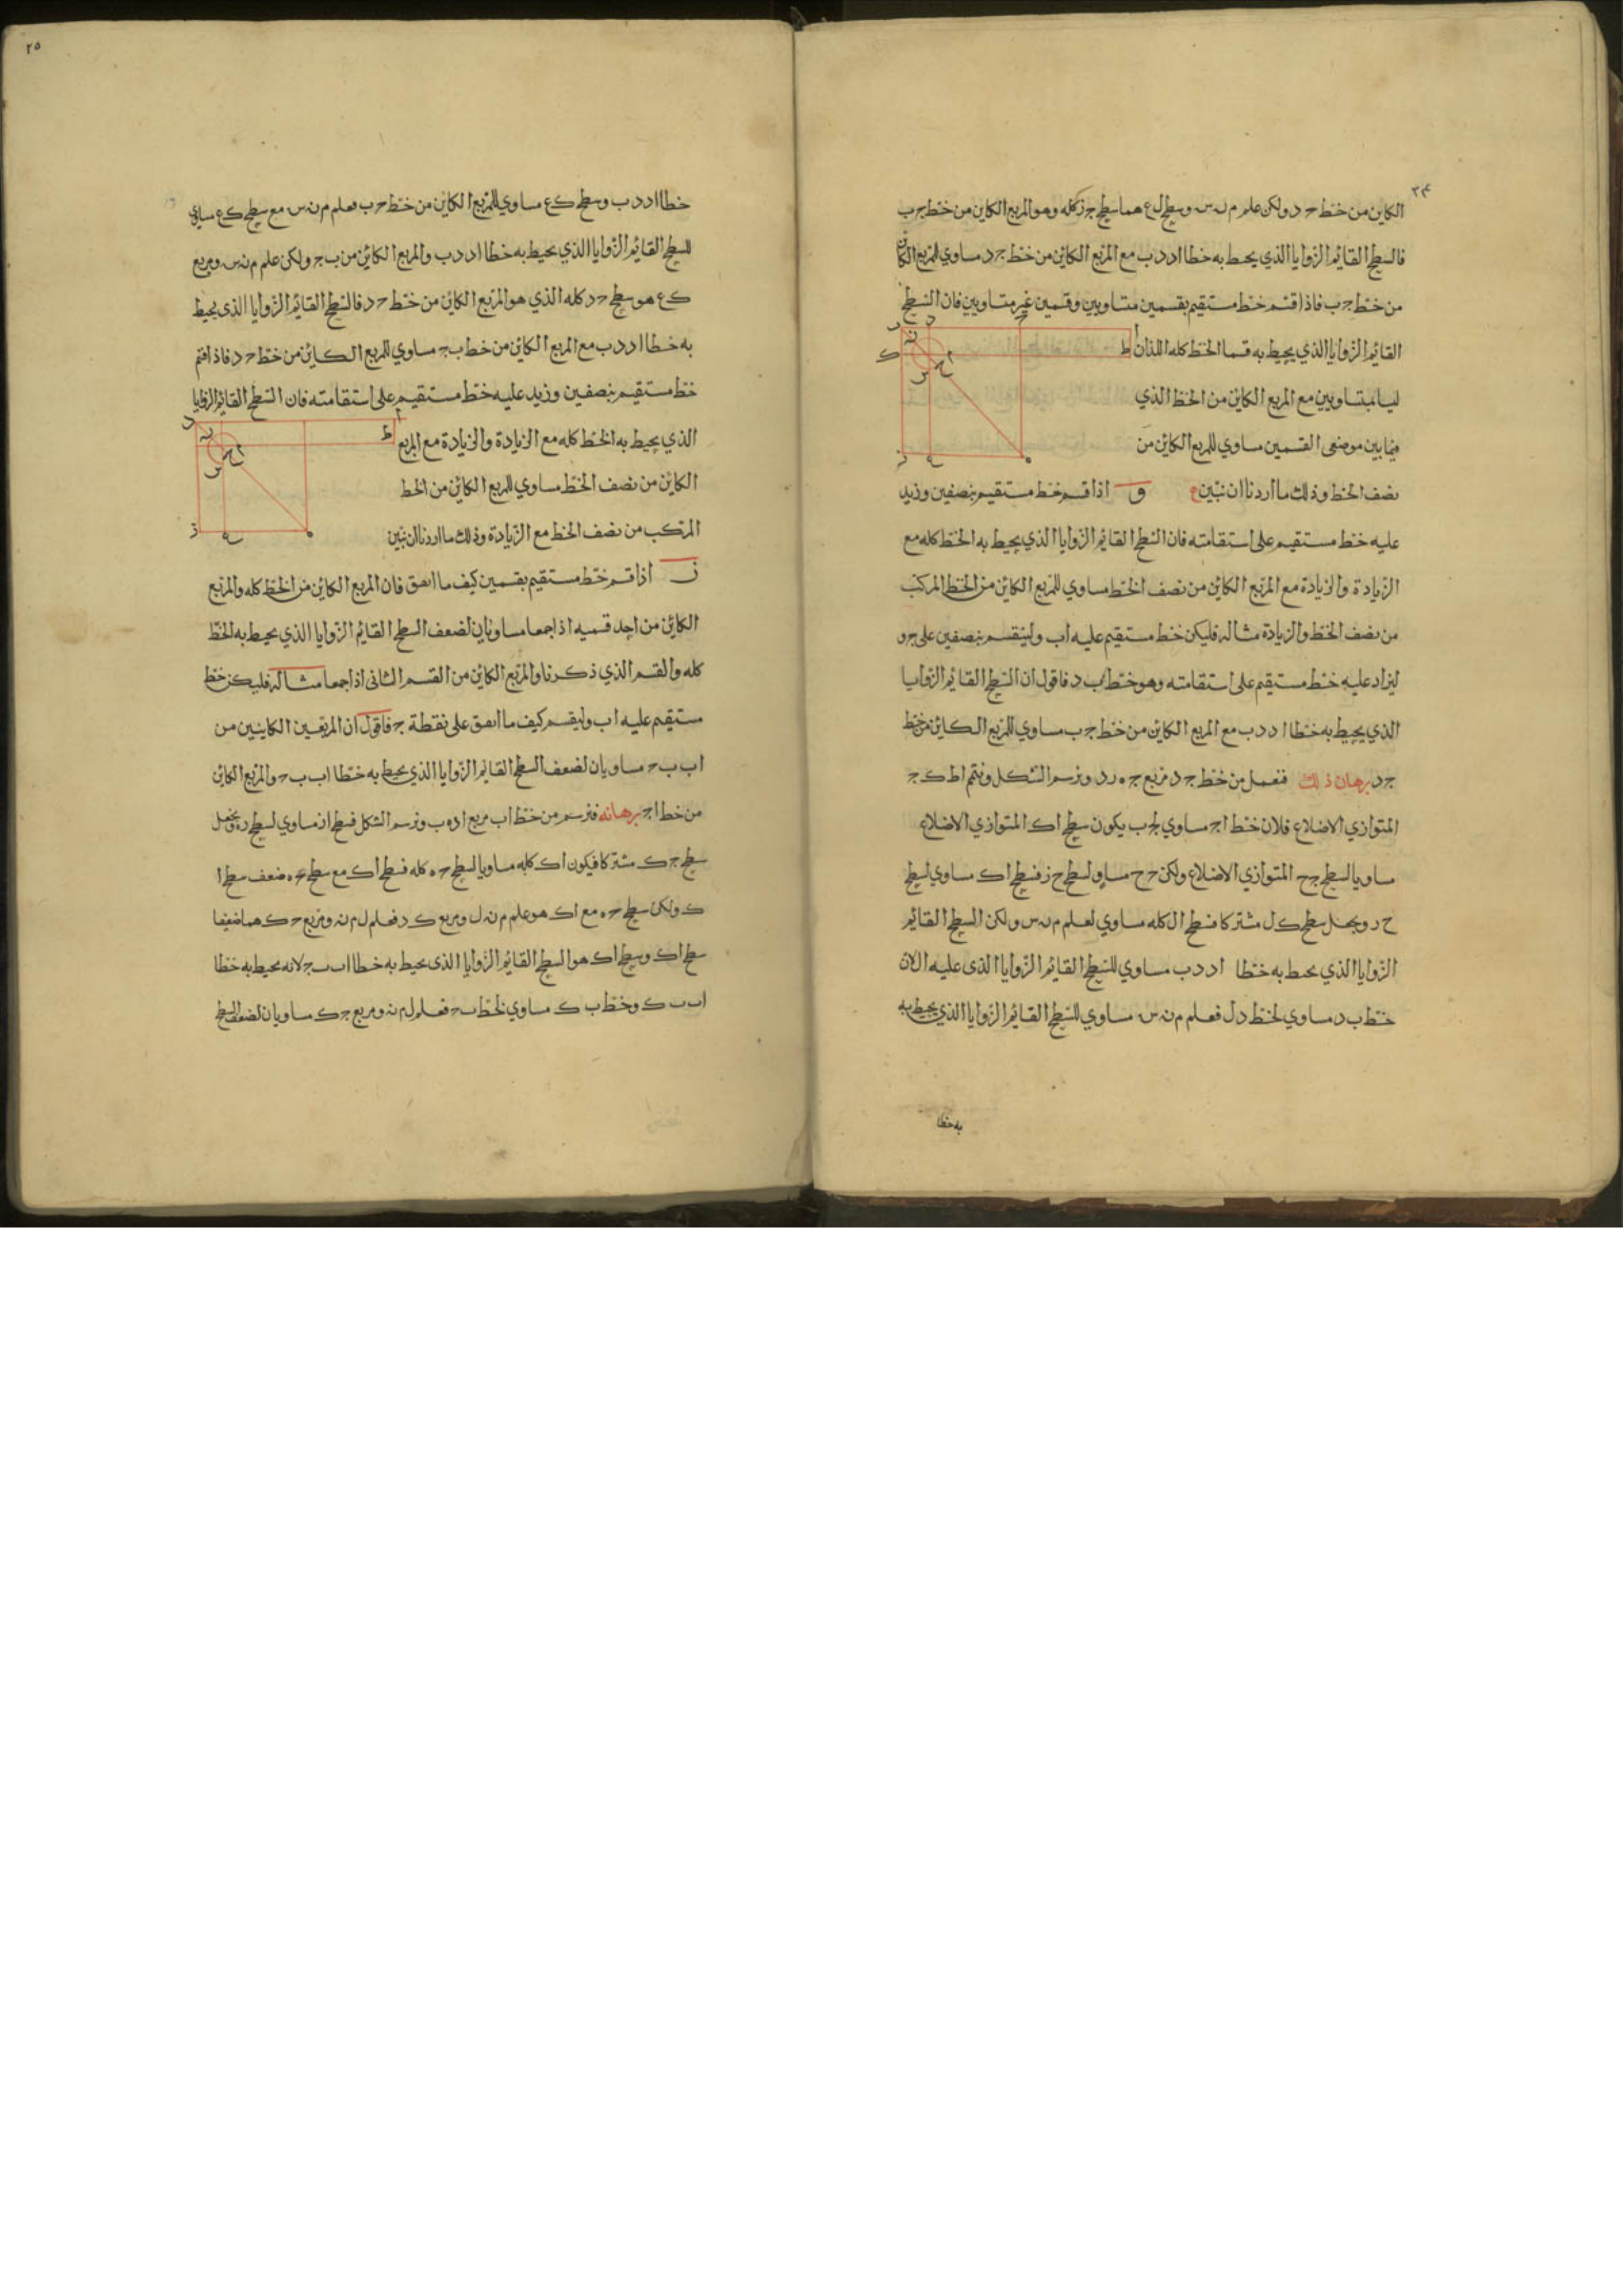 ٢٤
الكاين من خط ج د ولكن علم م ن س وسطح ل ع هما سطح ج ز كله وهو المربع الكاين من خط ج ب
فالسطح القايم الزوايا الذي يحيط به خطا ا د د ب مع المربع الكاين من خط ج د مساوي للمربع الكاين
من خط ج ب فاذا قسم خط مستقيم بقسمين متساويين وقسمين غير متساويين فان السطح
القايم الزوايا الذي يحيط به قسما الخط كله اللذان
ليسا بمتساويين مع المربع الكاين من الخط الذي
فيما بين موضعي القسمين مساوي للمربع الكاين من
نصف الخط وذلك ما اردنا ان نبين و اذا قسم خط مستقيم بنصفين وزيد
عليه خط مستقيم على استقامته فان السطح القايم الزوايا الذي يحيط به الخط كله مع
الزيادة والزيادة مع المربع الكاين من نصف الخط مساوي للمربع الكاين من الخط المركب
من نصف الخط والزيادة مثاله فليكن خط مستقيم عليه اب ولينقسم بنصفين على ج و
ليزاد عليه خط مستقيم على استقامته وهو خط ب د فاقول ان السطح القايم الزوايا
الذي يحيط به خطا ا د د ب مع المربع الكاين من خط ج ب مساوي للمربع الكاين من خط
ج د برهان ذلك فنعمل من خط ج د مربع ج ه ر د ونرسم الشكل ونتمم ا ط ك ج
المتوازي الاضلاع فلان خط ا ج مساوي لج ب يكون سطح ا ك المتوازي الاضلاع
مساويا لسطح ج ح المتوازي الاضلاع ولكن ج ح مساو لسطح ح ز فسطح ا ك مساوي لسطح
ح ر ويجعل سطح ك ل مشتركا فسطح ال كله مساوي لعلم م ن س ولكن السطح القايم
الزوايا الذي يحيط به خطا ا د د ب مساوي للسطح القايم الزوايا الذي عليه ال لان
خط ب د مساوي لخط د ل فعلم م ن س مساوي للسطح القايم الزوايا الذي يحيط به
به خطا
٢٥
خطا ا د د ب وسطح ك ع مساوي للمربع الكاين من خط ج ب فعلم م ن س مع سطح ك ع مساوي
للسطح القايم الزوايا الذي يحيط به خطا ا د د ب والمربع الكاين من ب ج ولكن علم م ن س ومربع
ك ع هو سطح ج د كله الذي هو المربع الكاين من خط ج د فالسطح القايم الزوايا الذي يحيط
به خطا ا د د ب مع المربع الكاين من خط ب ج مساوي للمربع الكاين من خط ج د فاذا قسم
خط مستقيم بنصفين وزيد عليه خط مستقيم على استقامته فان السطح القايم الزوايا
الذي يحيط به الخط كله مع الزيادة والزيادة مع المربع
الكاين من نصف الخط مساوي للمربع الكاين من الخط
المركب من نصف الخط مع الزيادة وذلك ما اردنا ان نبين
ز اذا قسم خط مستقيم بقسمين كيف ما اتفق فان المربع الكاين من الخط كله والمربع
الكاين من احد قسميه اذا جمعا مساويان لضعف السطح القايم الزوايا الذي يحيط به الخط
كله والقسم الذي ذكرنا والمربع الكاين من القسم الثاني اذا جمعا مثاله فليكن خط
مستقيم عليه اب وليقسم كيف ما اتفق على نقطة ج فاقول ان المربعين الكاينين من
اب ب ج مساويان لضعف السطح القايم الزوايا الذي يحيط به خطا اب ب ج والمربع الكاين
من خط ا ج برهانه فنرسم من خط اب مربع ا د ه ب ونرسم الشكل فسطح ا ز مساوي لسطح ر ه ونجعل
سطح ج ك مشتركا فيكون ا ك كله مساويا لسطح ج ه كله فسطح ا ك مع سطح ج ه ضعف سطح ا
ك ولكن سطح ج ه مع ا ك هو علم م ن ل ومربع ك د فعلم ل م ن ومربع ج ك هما ضعفا
سطح ا ك وسطح ا ك هو السطح القايم الزوايا الذي يحيط به خطا اب ب ج لانه يحيط به خطا
اب ب ك وخط ب ك مساوي لخط ب ج فعلم ل م ن ومربع ج ك مساويان لضعف السطح